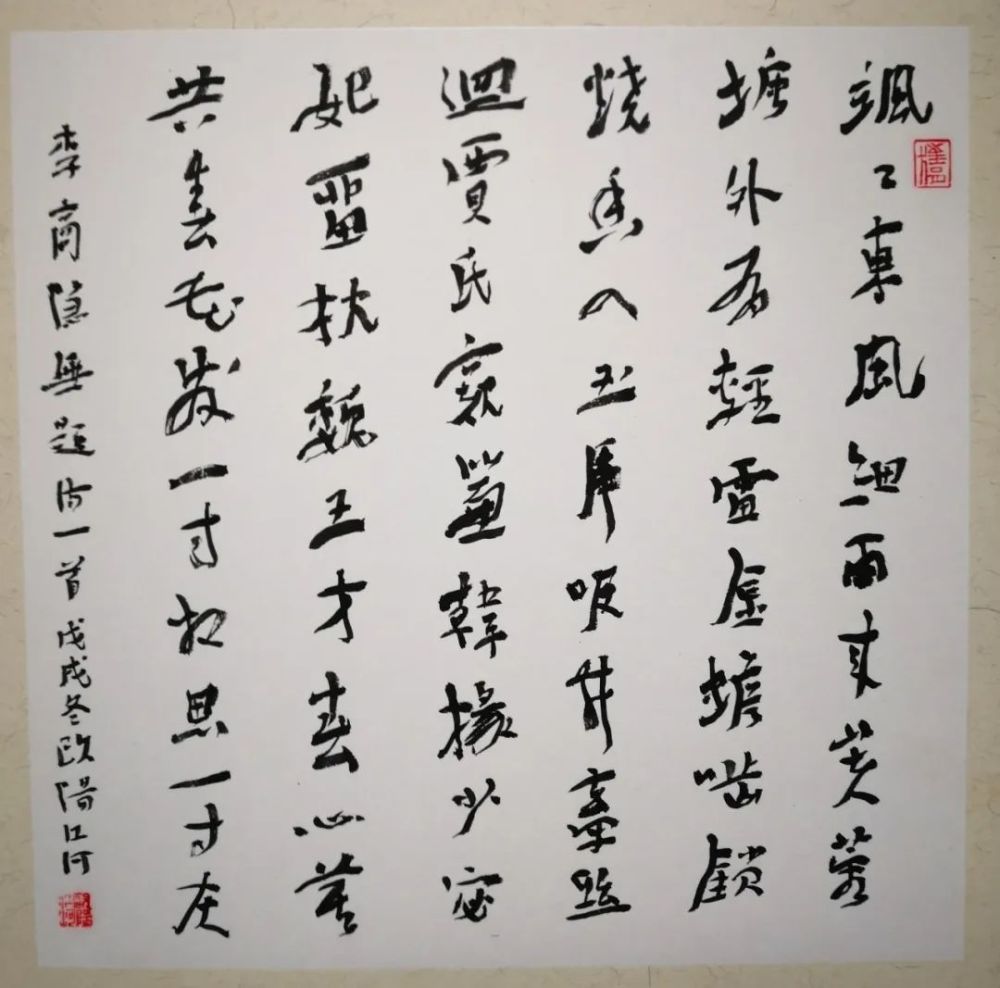 颯〻東風細雨來芙蓉
塘外有輕雷金蟾嚙鎖
燒香入玉虎吸井牽絲
迴賈氏窺簾韓掾少宓
妃留枕魏王才春心莫
共春花發一寸相思一寸灰
李商隱無題詩一首戊戌冬歐陽江河